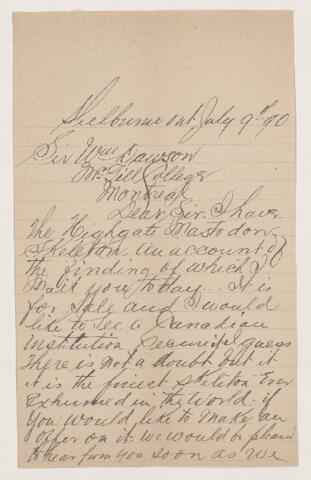 Shelburne ont July 9th 90
Sir Wm Dawson
McGill College
Montreal
Dear Sir I have
the Highgate Mastodon
Skeleton. an account of
the finding of which I
Mail you to day. It is
for Sale and I would
like to See a Canadian
institution Secure it I guess
there is not a doubt but it
it is the finest Skeleton Ever
Exhumed in the World. if
you Would like to Make an
offer on it we would be pleased
to hear from you Soon as We